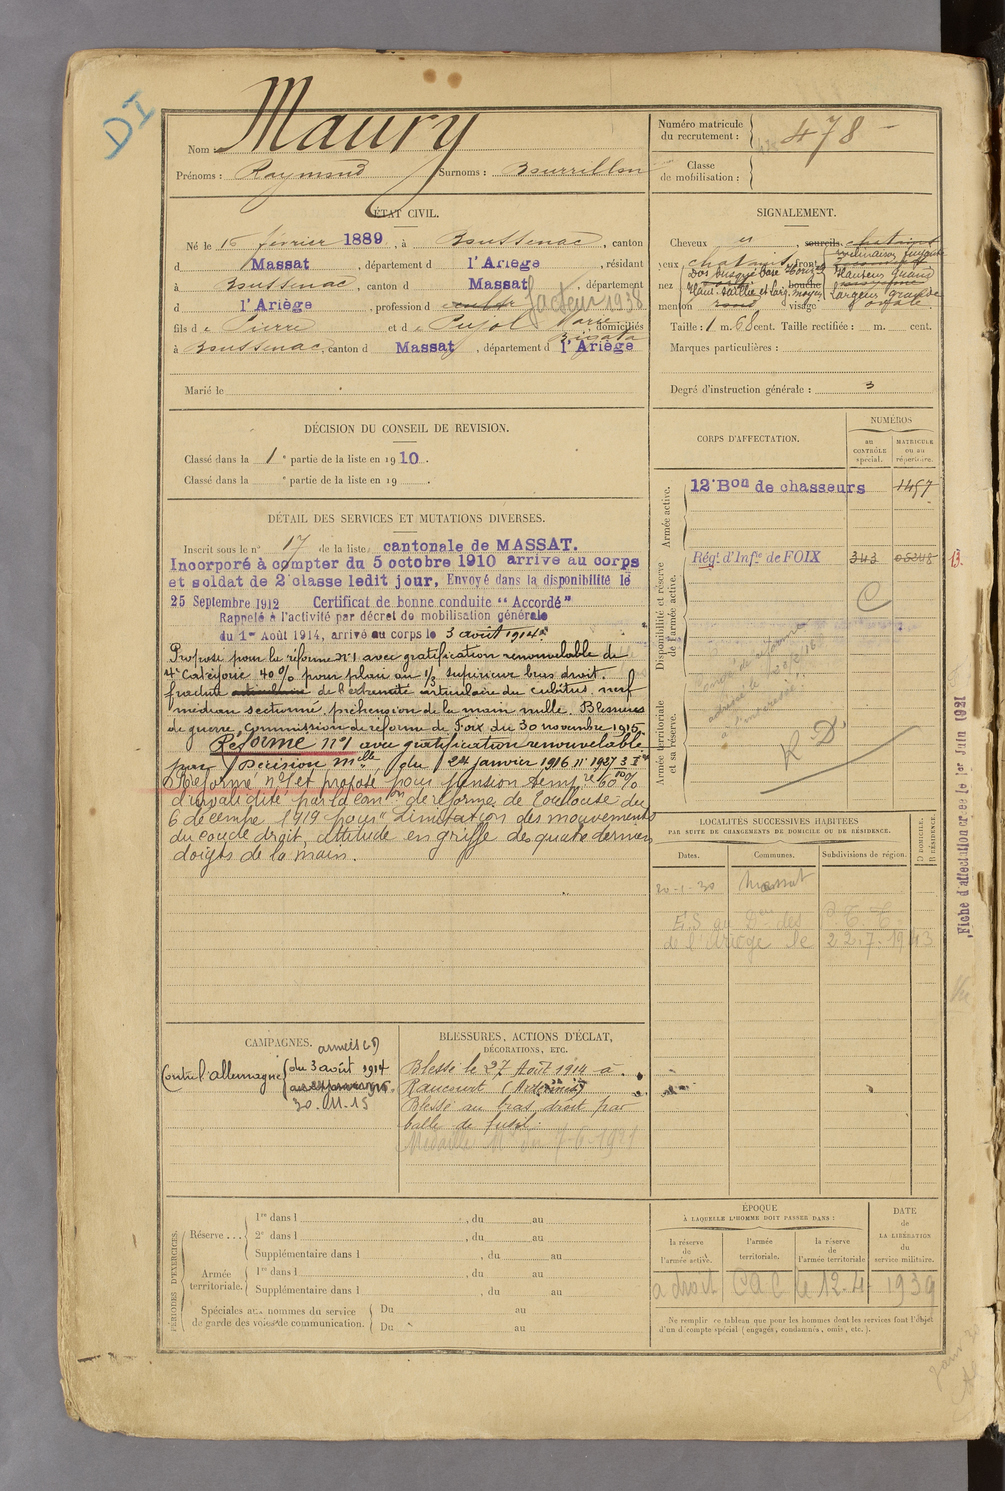 DI
Nom : Maury
Prénoms : Raymond Surnoms : Bourrillon
Numéro matricule
du recrutement : 478
Classe
de mobilisation :
ÉTAT CIVIL.
Né le 16 février 1889, à Boussenac, canton
d Massat, département d l'Ariège, résidant
à Boussenac, canton d Massat, département
d l'Ariège, profession de facteur 1938
fils de Pierre et de Pujol Marie domiciliés
à Boussenac, canton d Massat, département d l'Ariège
Marié le
SIGNALEMENT.
Cheveux , sourcils chatains
yeux chatains front
nez Dos busqué base
Haut. saillie et larg. moyen bouche
Hauteur grand
largeur grande
menton rond visage ovale
Taille : 1 m. 68 cent. Taille rectifiée : m. cent.
Marques particulières :
Degré d'instruction générale : 3
DÉCISION DU CONSEIL DE REVISION.
Classé dans la 1e partie de la liste en 1910.
Classé dans la e partie de la liste en 19 .
DÉTAIL DES SERVICES ET MUTATIONS DIVERSES.
Inscrit sous le n° 17 de la liste cantonale de MASSAT.
Incorporé à compter du 5 octobre 1910 arrivé au corps
et soldat de 2e classe ledit jour, Envoyé dans la disponibilité le
25 Septembre 1912 Certificat de bonne conduite "Accordé"
Rappelé à l'activité par décret de mobilisation générale
du 1er Août 1914, arrivé au corps le 3 août 1914.
Proposé pour la réforme n°1 avec gratification renouvelable de
4e Catégorie 40 % pour plaie au 1/3 supérieur bras droit.
fracture articulaire de l'extremité articulaire du cubitus, nerf
médian sectionné, préhension de la main nulle. Blessures
de guerre. Commission de réforme de Foix du 30 novembre 1915.
Réformé n°1 avec gratification renouvelable
par Décision Mlle du 24 janvier 1916
Réformé n°1 et proposé pour pension temp re 60 %
d'invalidité par la Com on de réforme de Toulouse du
6 décembre 1919 pour "Limitation des mouvements
du coude droit, attitude en griffe des quatre derniers
doigts de la main.
CORPS D'AFFECTATION.
NUMÉROS
au
CONTRÔLE
spécial.
MATRICULE
ou au
répertoire.
Armée active.
12e Bon de chasseurs 1457
Disponibilité et réserve
de l'armée active.
Rég. d'Infie de FOIX 343 05348 13.
C
Armée territoriale
et sa réserve.
R D
Fiche d'affectation créée le 1er Juin 1921
LOCALITÉS SUCCESSIVES HABITÉES
PAR SUITE DE CHANGEMENTS DE DOMICILE OU DE RÉSIDENCE.
Dates. Communes. Subdivisions de région. D DOMICILE. R RÉSIDENCE.
20-1-30 Massat
E.S au Don des P.T.T.
de l'Ariège le 22.7.1943
CAMPAGNES.
armée
Contre l'allemagne du 3 août 1914
30.11.15
BLESSURES, ACTIONS D'ÉCLAT,
DÉCORATIONS, ETC.
Blessé le 27 Août 1914 à
Raucourt (Ardennes)
Blessé au bras droit par
balle de fusil.
Médaille Mre du 7-6-1921
PÉRIODES D'EXERCICES.
Réserve... 1re dans l , du au
2e dans l , du au
Supplémentaire dans l , du au
Armée
territoriale. 1re dans l , du au
Supplémentaire dans l , du au
Spéciales aux hommes du service
de garde des voies de communication. Du au
Du au
ÉPOQUE
À LAQUELLE L'HOMME DOIT PASSER DANS :
la réserve
de
l'armée active.
l'armée
territoriale.
la réserve
de
l'armée territoriale
DATE
de
LA LIBÉRATION
du
service militaire.
a droit CAC le 12.4. 1939
Ne remplir ce tableau que pour les hommes dont les services font l'objet
d'un décompte spécial (engagés, condamnés, omis, etc.).